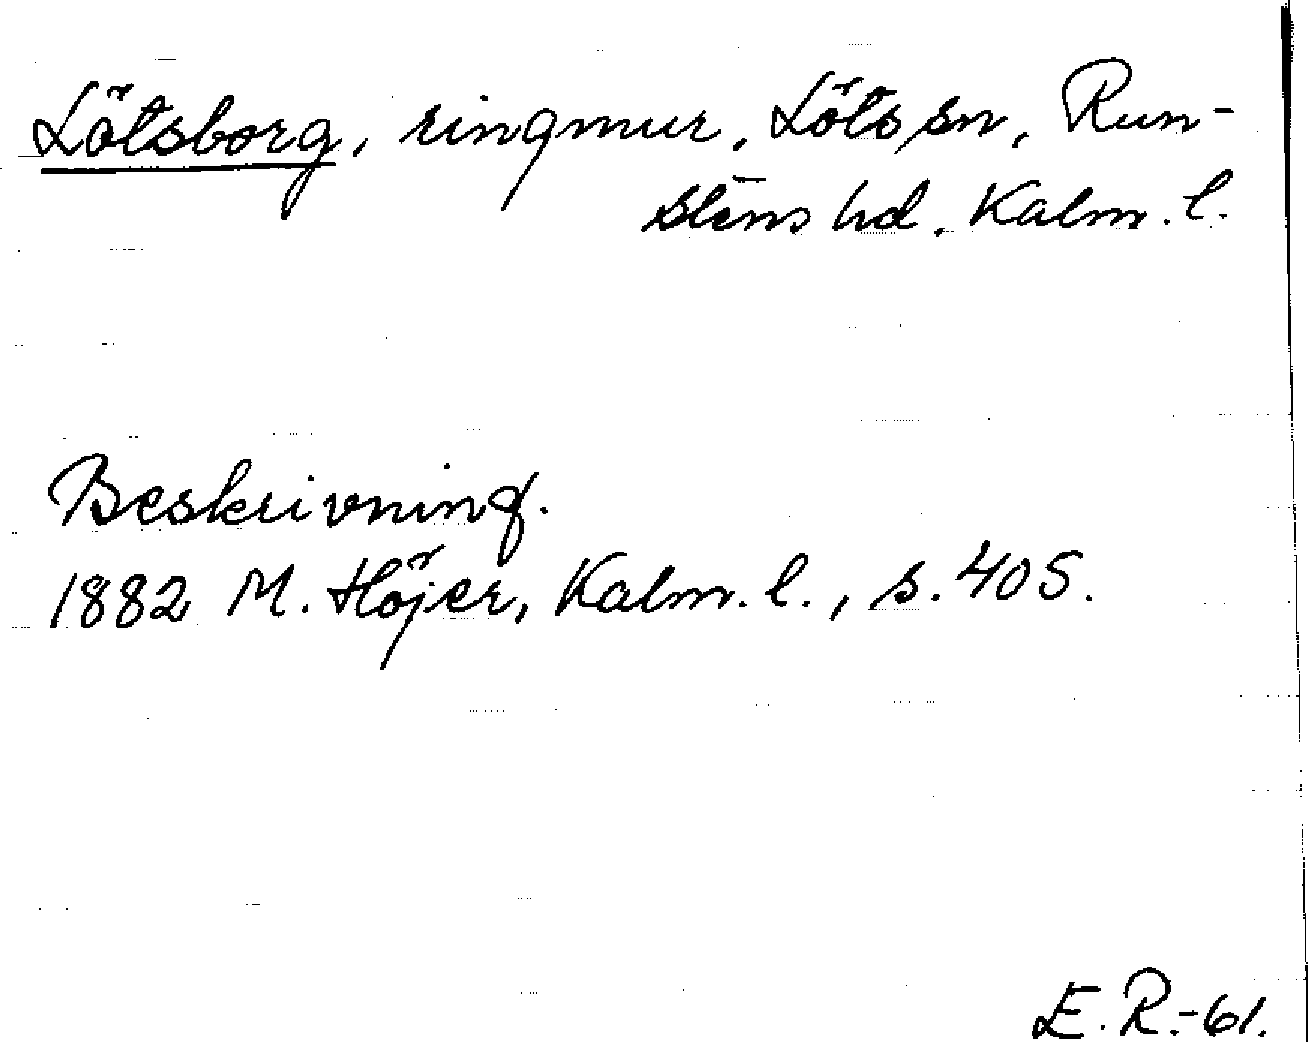 Lötsborg, ringmur, Löts sn, Run-
stens hd. Kalm. l.
Beskrivning.
1882 M. Höjer, Kalm. l., s. 405.
E. R.-61.